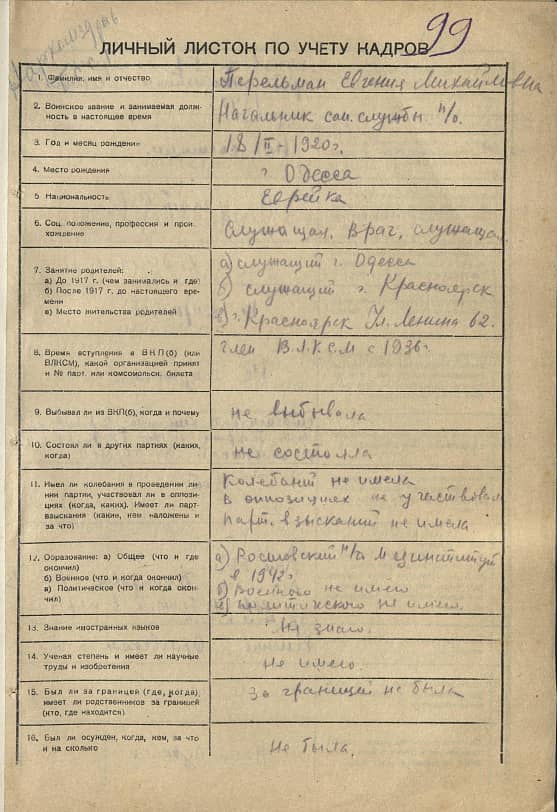 99
ЛИЧНЫЙ ЛИСТОК ПО УЧЕТУ КАДРОВ
1. Фамилия, имя и отчество
Перельман Евгения Михайловна
2. Воинское звание и занимаемая долж-
ность в настоящее время
Начальник сан. службы п/о.
3. Год и месяц рождения
18/II-1920г.
4. Место рождения
г. Одесса
5 Национальность
Еврейка
6. Соц. положение, профессия и прои-
хождение
Служащая, Врач, служащая
7. Занятие родителей:
а) До 1917 г. (чем занимались и где)
б) После 1917 г. до настоящего вре-
мени
в) Место жительства родителей
а) служащий г. Одесса
б) служащий г. Красноярск
в) г. Красноярск Ул. Ленина 62.
8. Время вступления в ВКП(б) (или
ВЛКСМ), какой организацией принят
и № парт. или комсомольск. билета
член В.Л.К.С.М с 1936г.
9. Выбывал ли из ВКП(б), когда и почему
не выбывала
10. Состоял ли в других партиях (каких,
когда)
не состояла
11. Имел ли колебания в проведении ли-
нии партии, участвовал ли в оппози-
циях (когда, каких). Имеет ли парт-
взыскания (какие, кем наложены и
за что)
Колебаний не имела
в оппозициях не участвовал
парт. взысканий не имела
12. Образование: а) Общее (что и где
окончил)
б) Военное (что и когда окончил)
в) Политическое (что и когда окон-
чил)
а) Мединститут
в 1942г.
б) Военного не имею
в) не имею.
13. Знание иностранных языков
Не знаю.
14. Ученая степень и имеет ли научные
труды и изобретения
Не имею.
15. Был ли за границей (где, когда);
имеет ли родственников за границей
(кто, где находится)
За границей не была
16. Был ли осужден, когда, кем, за что
и на сколько
Не была.